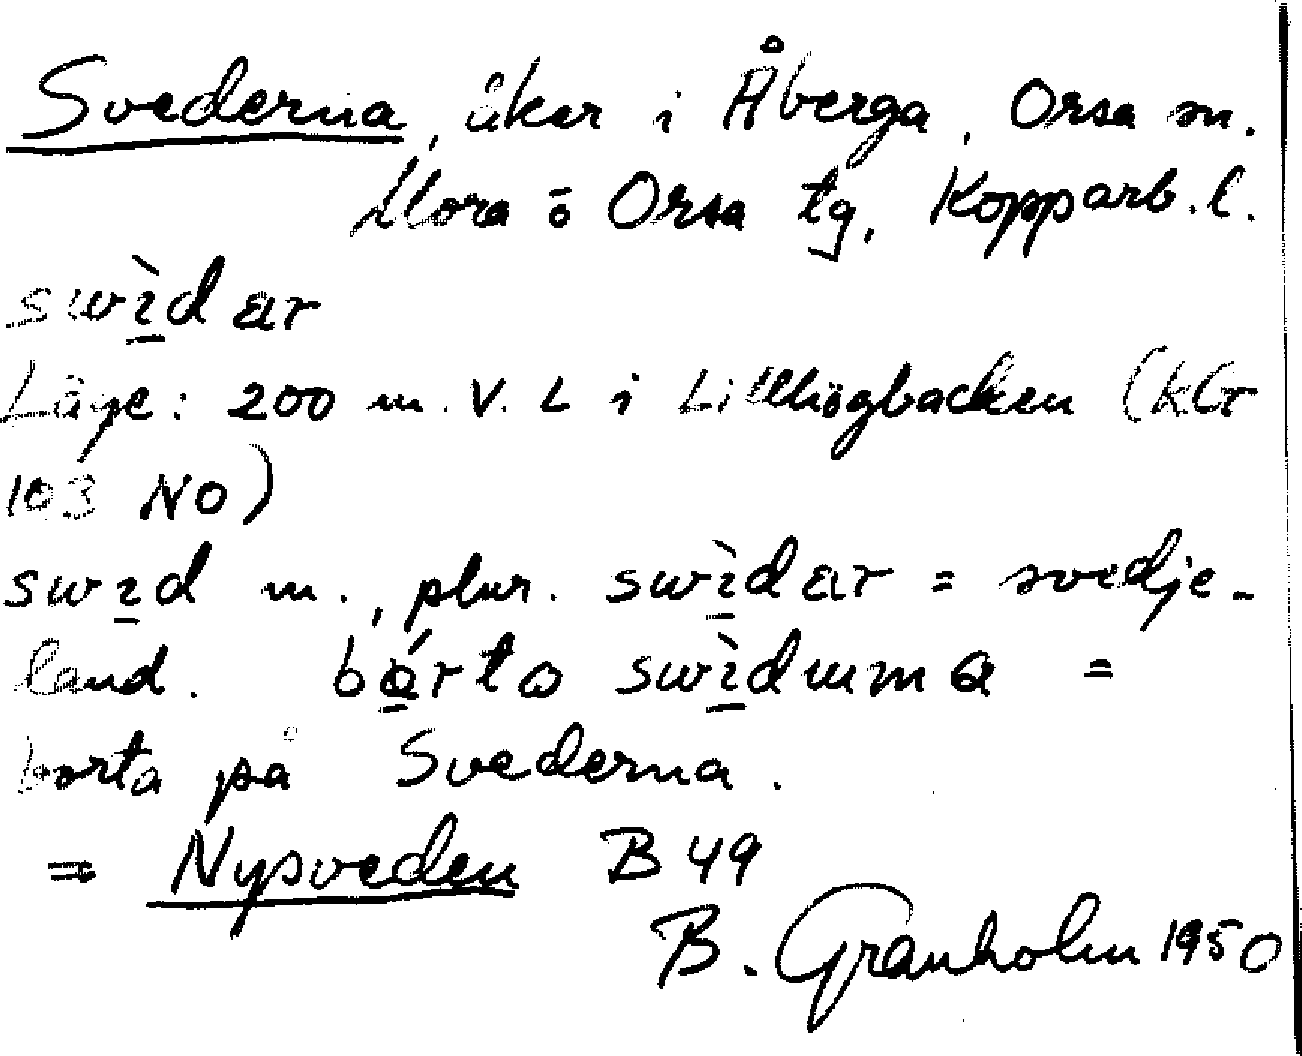 Svederna, åker i Åberga, Orsa sn.
Mora o Orsa tg, Kopparb. l.
swìdar
Läge: 200 m. V. L i Lillhögbacken (KGr
103 NO)
swid m., plur. swìdar = svedje-
land. bórto swìdumma =
borta på Svederna.
= Nysveden B 49
B. Granholm 1950